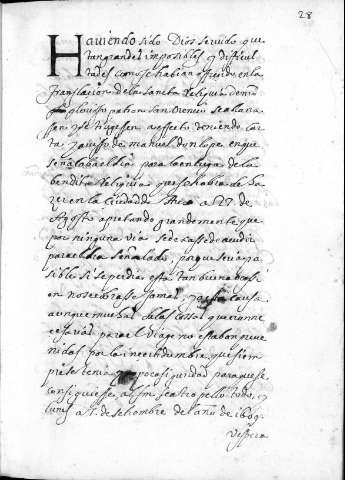 28
Haviendo sido Dios servido que
tan grandes imposibles y dificul
tades como se habian ofrecido en la
translacion de la sancta Reliquia de nro
glorioso patron San Orencio se allana
sen y se truxesen a effecto teniendo car
ta y avisso de manuel don lope en que
señalaba el dia para la entrega de la
bendita Reliquia que se habia de ha
zer en la ciudad de a 27 de
Agosto apretando grandemente que
por ninguna via se dexasse de acudir
para el dia señalado, porque seria po
sible si se perdia esta tan buena occasi
on no se cobrasse jamas, y por esta causa
aunque muchas de las cossas que eran ne
cesarias para el viage no estaban preve
nidas, por la incertidumbre que siem
pre se tenia y poca siguridad para que se
consiguiesse al fin se atropello todo, y
lunes a 7 de setiembre del año de 1609
vespera